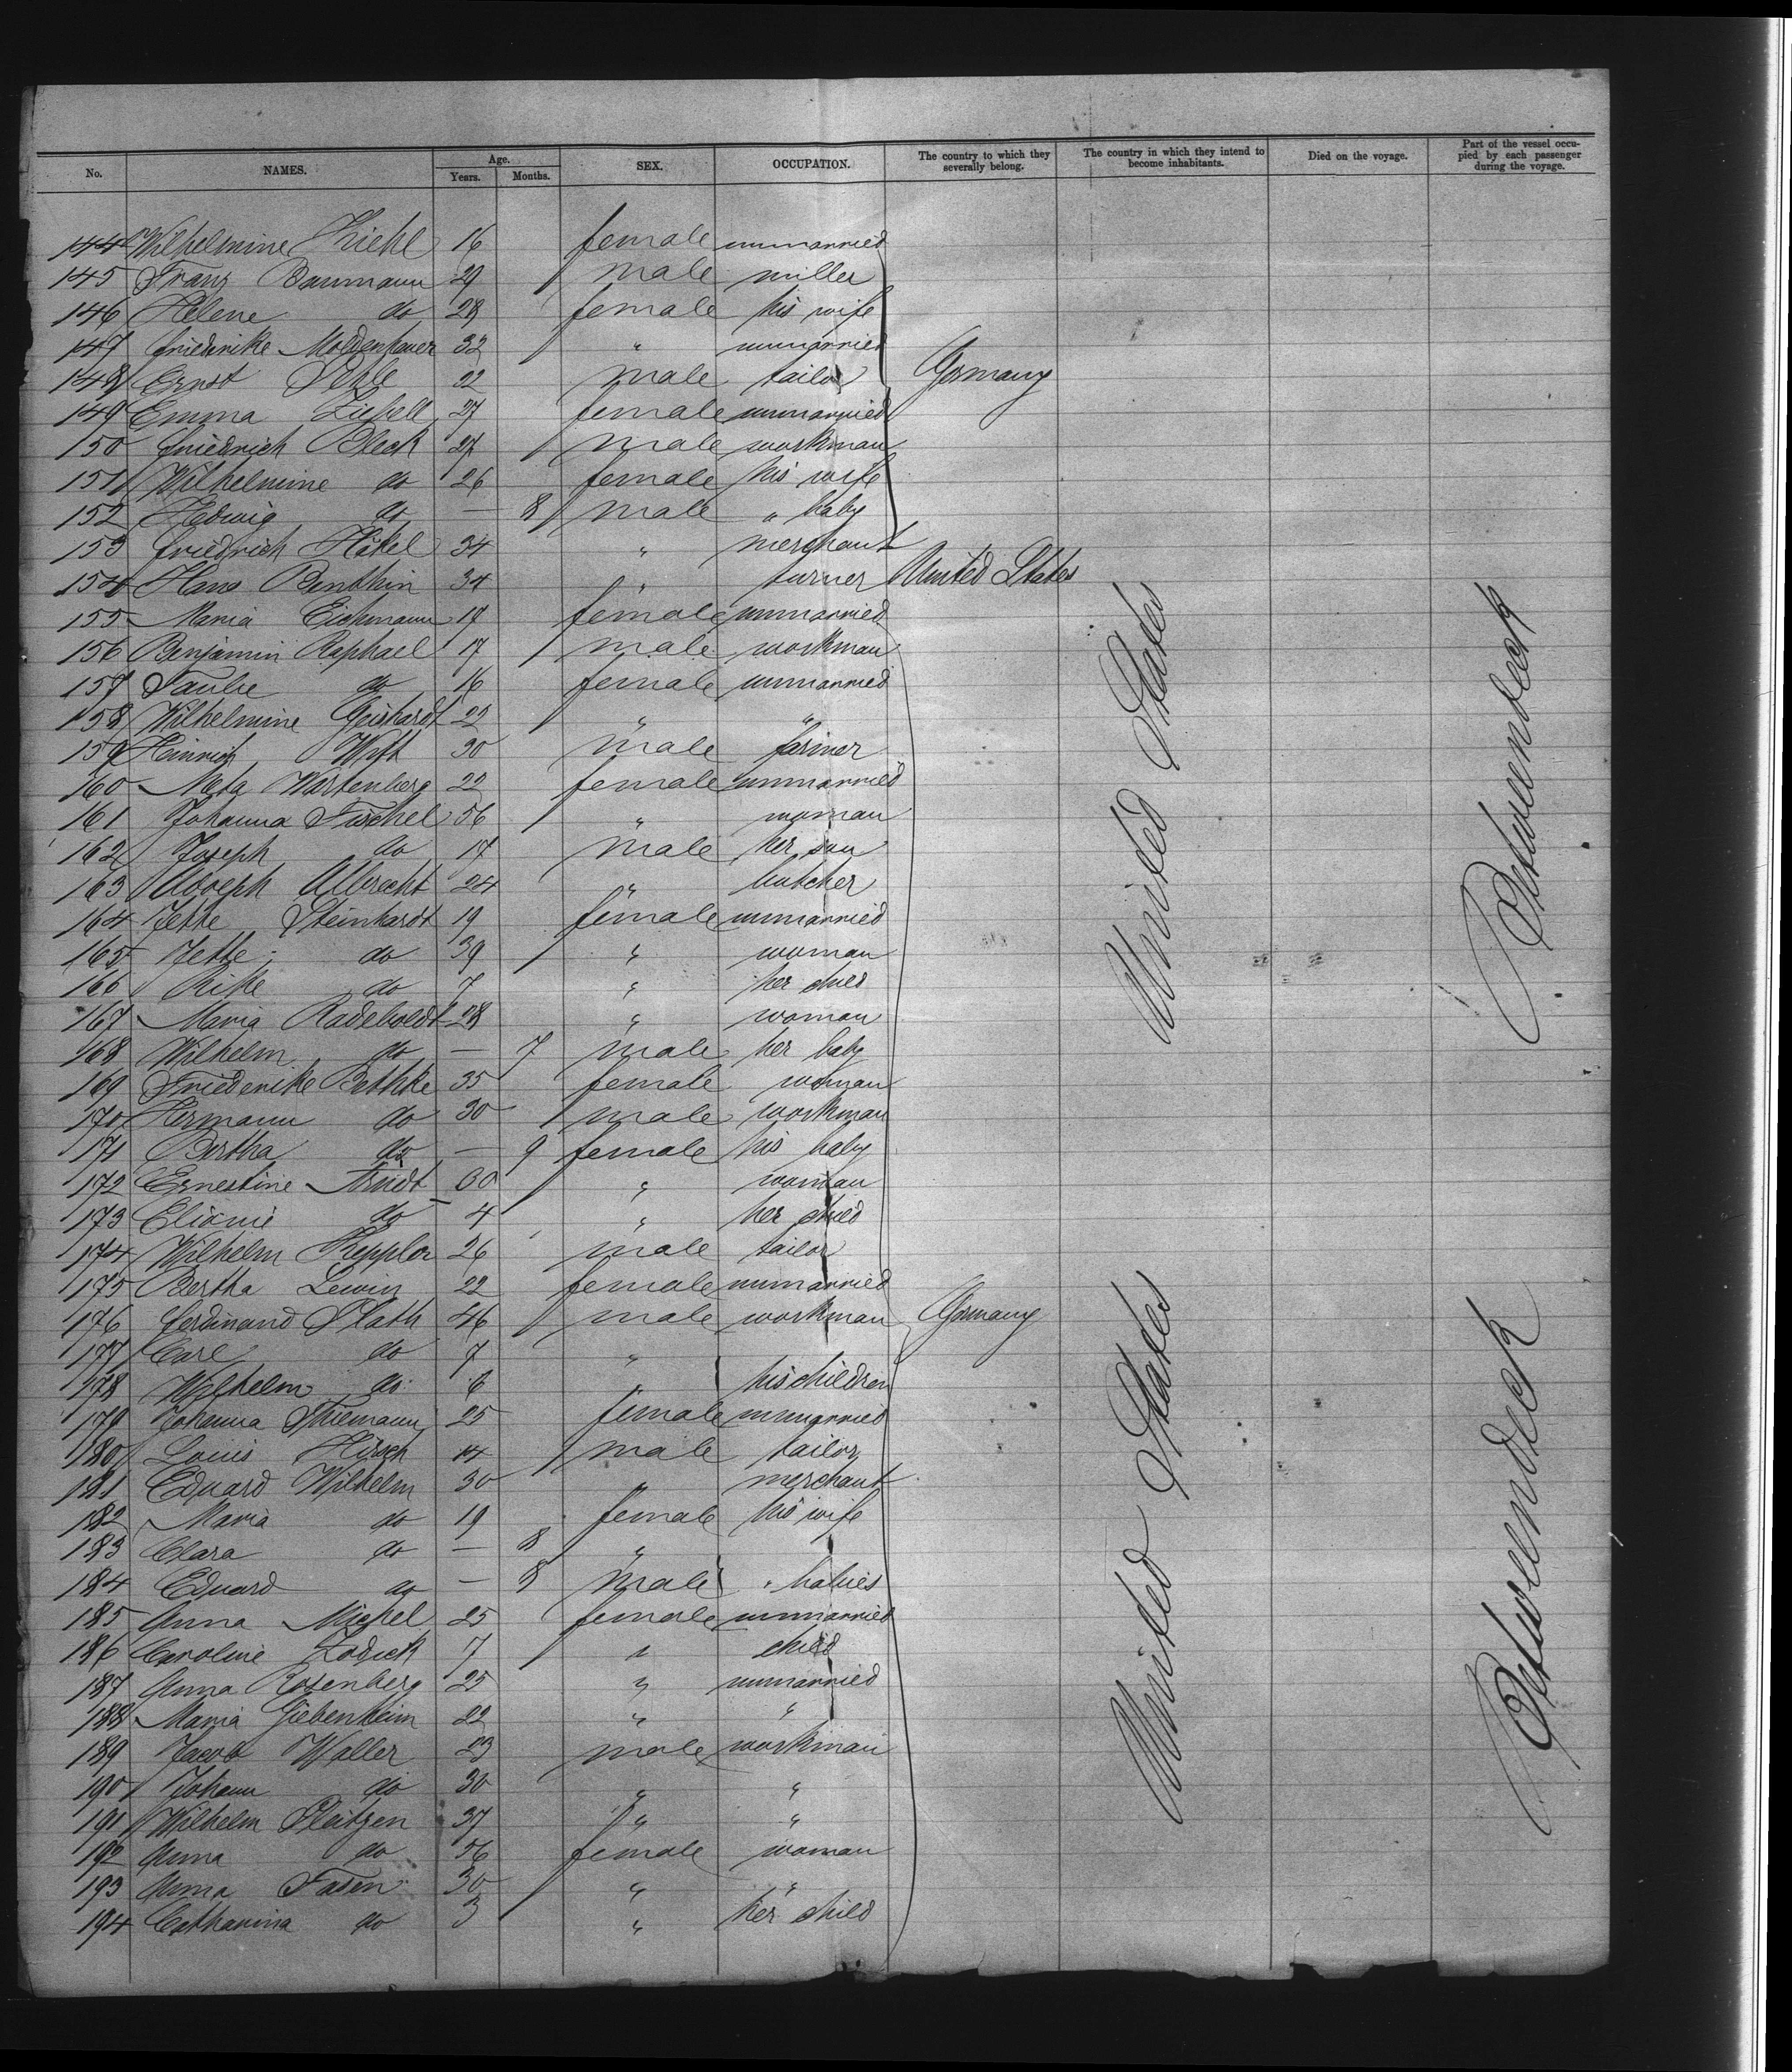 No. NAMES. Age. Years. Months. SEX. OCCUPATION. The country to which they severally belong. The country in which they intend to become inhabitants. Died on the voyage. Part of the vessel occupied by each passenger during the voyage.
144 Wilhelmine 16 female unmarried
145 Franz Baumann 29 male miller
146 Helene do 28 female his wife
147 Friederike Moldenhauer 32 " unmarried
148 Ernst 22 male tailor Germany
149 Emma 27 female unmarried
150 Friedrich Bleck 27 male workman
151 Wilhelmine do 26 female his wife
152 Hedwig do — 8 male " baby
153 Friedrich Häkel 34 " merchant
154 Hans Benthin 34 " turner United States
155 Maria Eichmann 17 female unmarried
156 Benjamin Raphael 17 male workman
157 do 16 female unmarried
158 Wilhelmine 22 " "
159 Heinrich 30 male farmer
160 Meta Wartenberg 22 female unmarried
161 Johanna Fischel 56 " woman
162 Joseph do 17 male her son
163 Adolph Albrecht 24 " butcher
164 Jette Steinhardt 19 female unmarried
165 Jette do 39 " woman
166 Rike do 7 " her child
167 Maria Radeboldt 28 " woman
168 Wilhelm do — 7 male her baby
169 Friederike Bethke 35 female woman
170 Hermann do 30 male workman
171 Bertha do — 9 female his baby
172 Ernestine Arndt 60 " woman
173 do 4 " her child
174 Wilhelm Keppler 26 male tailor
175 Bertha Lewin 22 female unmarried
176 Ferdinand Plath 46 male workman Germany
177 Carl do 7 "
178 Wilhelm do 6 " his children
179 Johanna Thiemann 25 female unmarried
180 Louis Hirsch 14 male tailor
181 Eduard Wilhelm 30 " merchant
182 Maria do 19 female his wife
183 Clara do — 8 "
184 Eduard do — 8 male " babies
185 Anna Michel 25 female unmarried
186 Caroline Zodick 7 " child
187 Anna Rosenberg 25 " unmarried
188 Maria Giebenheim 22 " "
189 Jacob Waller 23 male workman
190 Johann do 30 " "
191 Wilhelm 37 " "
192 Anna do 56 female woman
193 Anna 30 " "
194 Catharina do 3 " her child
United States
United States
Betweendeck
Betweendeck